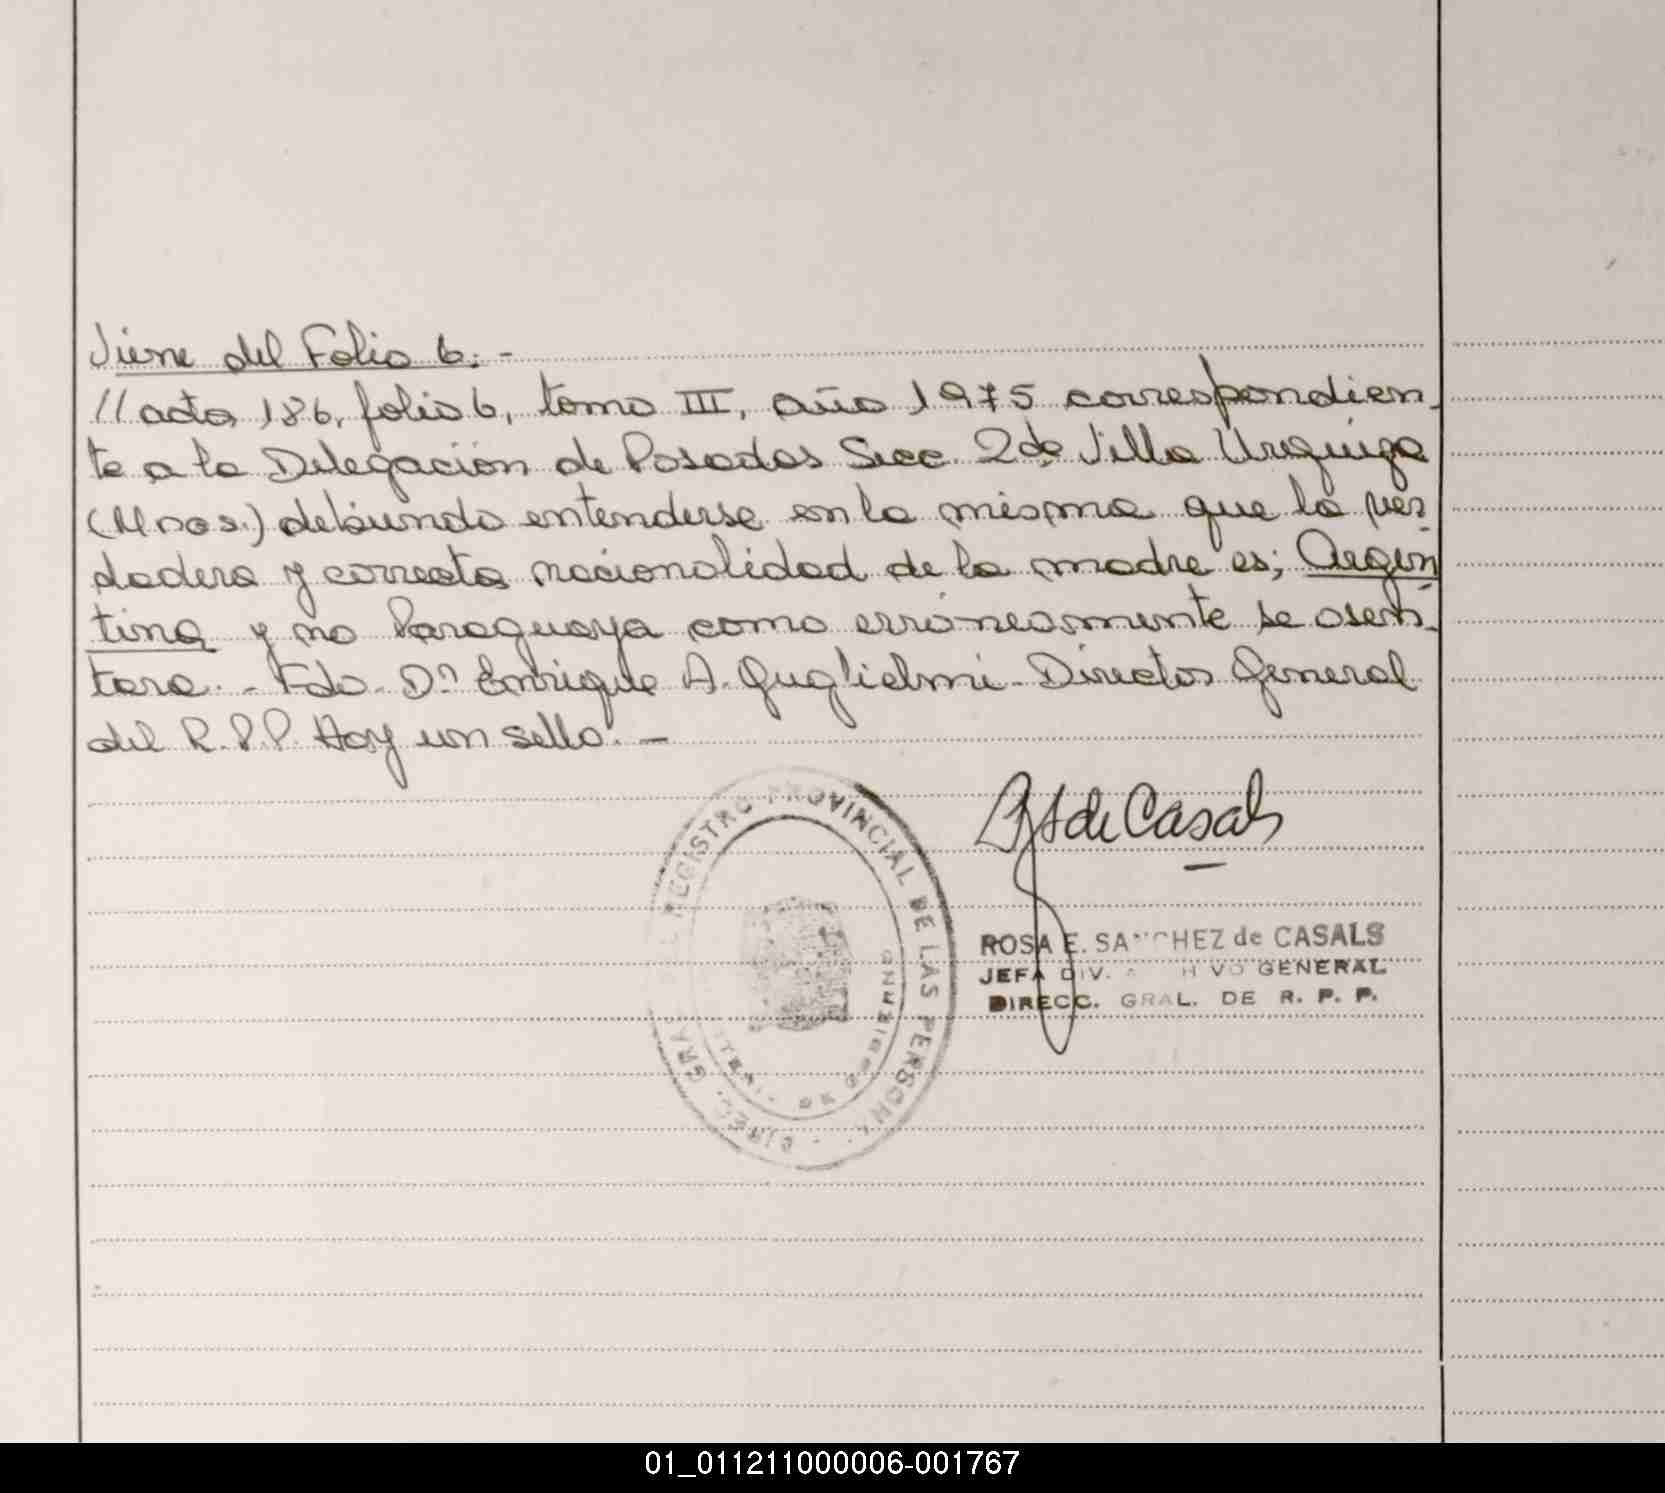 Viene del Folio 6.-
//acta 186, folio 6, tomo III, año 1975 correspondien-
te a la Delegación de Posadas Secc. 2da Villa Urquiza
(Mnes.) debiendo entenderse en la misma que la ver-
dadera y correcta nacionalidad de la madre es; Argen-
tina y no Paraguaya como erróneamente se asen-
tara.- Fdo. Dn Enrique A. Guglielmi- Director General
del R.P.P. Hay un sello.-
de Casals
ROSA E. SANCHEZ de CASALS
JEFA DIV. ARCHIVO GENERAL
DIRECC. GRAL. DE R. P. P.
REGISTRO PROVINCIAL DE LAS PERSONAS
DIREC. GRAL.
01_011211000006-001767